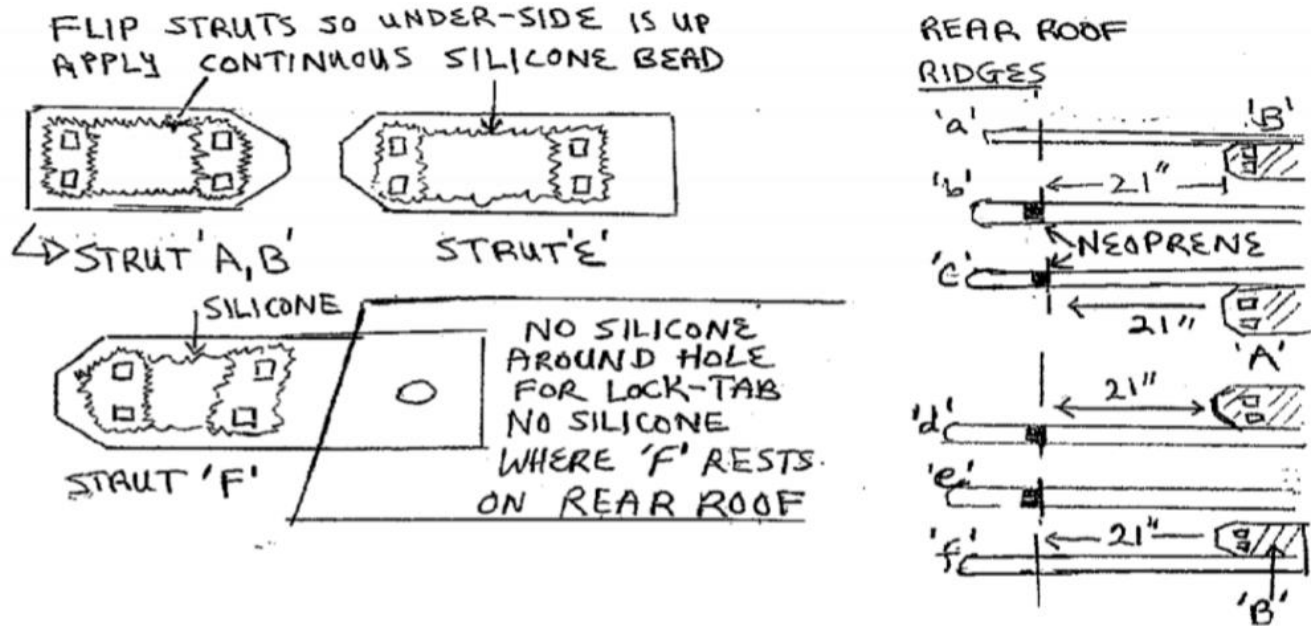 FLIP STRUTS SO UNDER-SIDE IS UP
APPLY CONTINUOUS SILICONE BEAD
STRUT 'A, B'
STRUT 'E'
SILICONE
STRUT 'F'
NO SILICONE
AROUND HOLE
FOR LOCK-TAB
NO SILICONE
WHERE 'F' RESTS
ON REAR ROOF
REAR ROOF
RIDGES
'a'
'B'
'b'
21"
NEOPRENE
'c'
21"
'A'
21"
'd'
'e'
'f'
21"
'B'